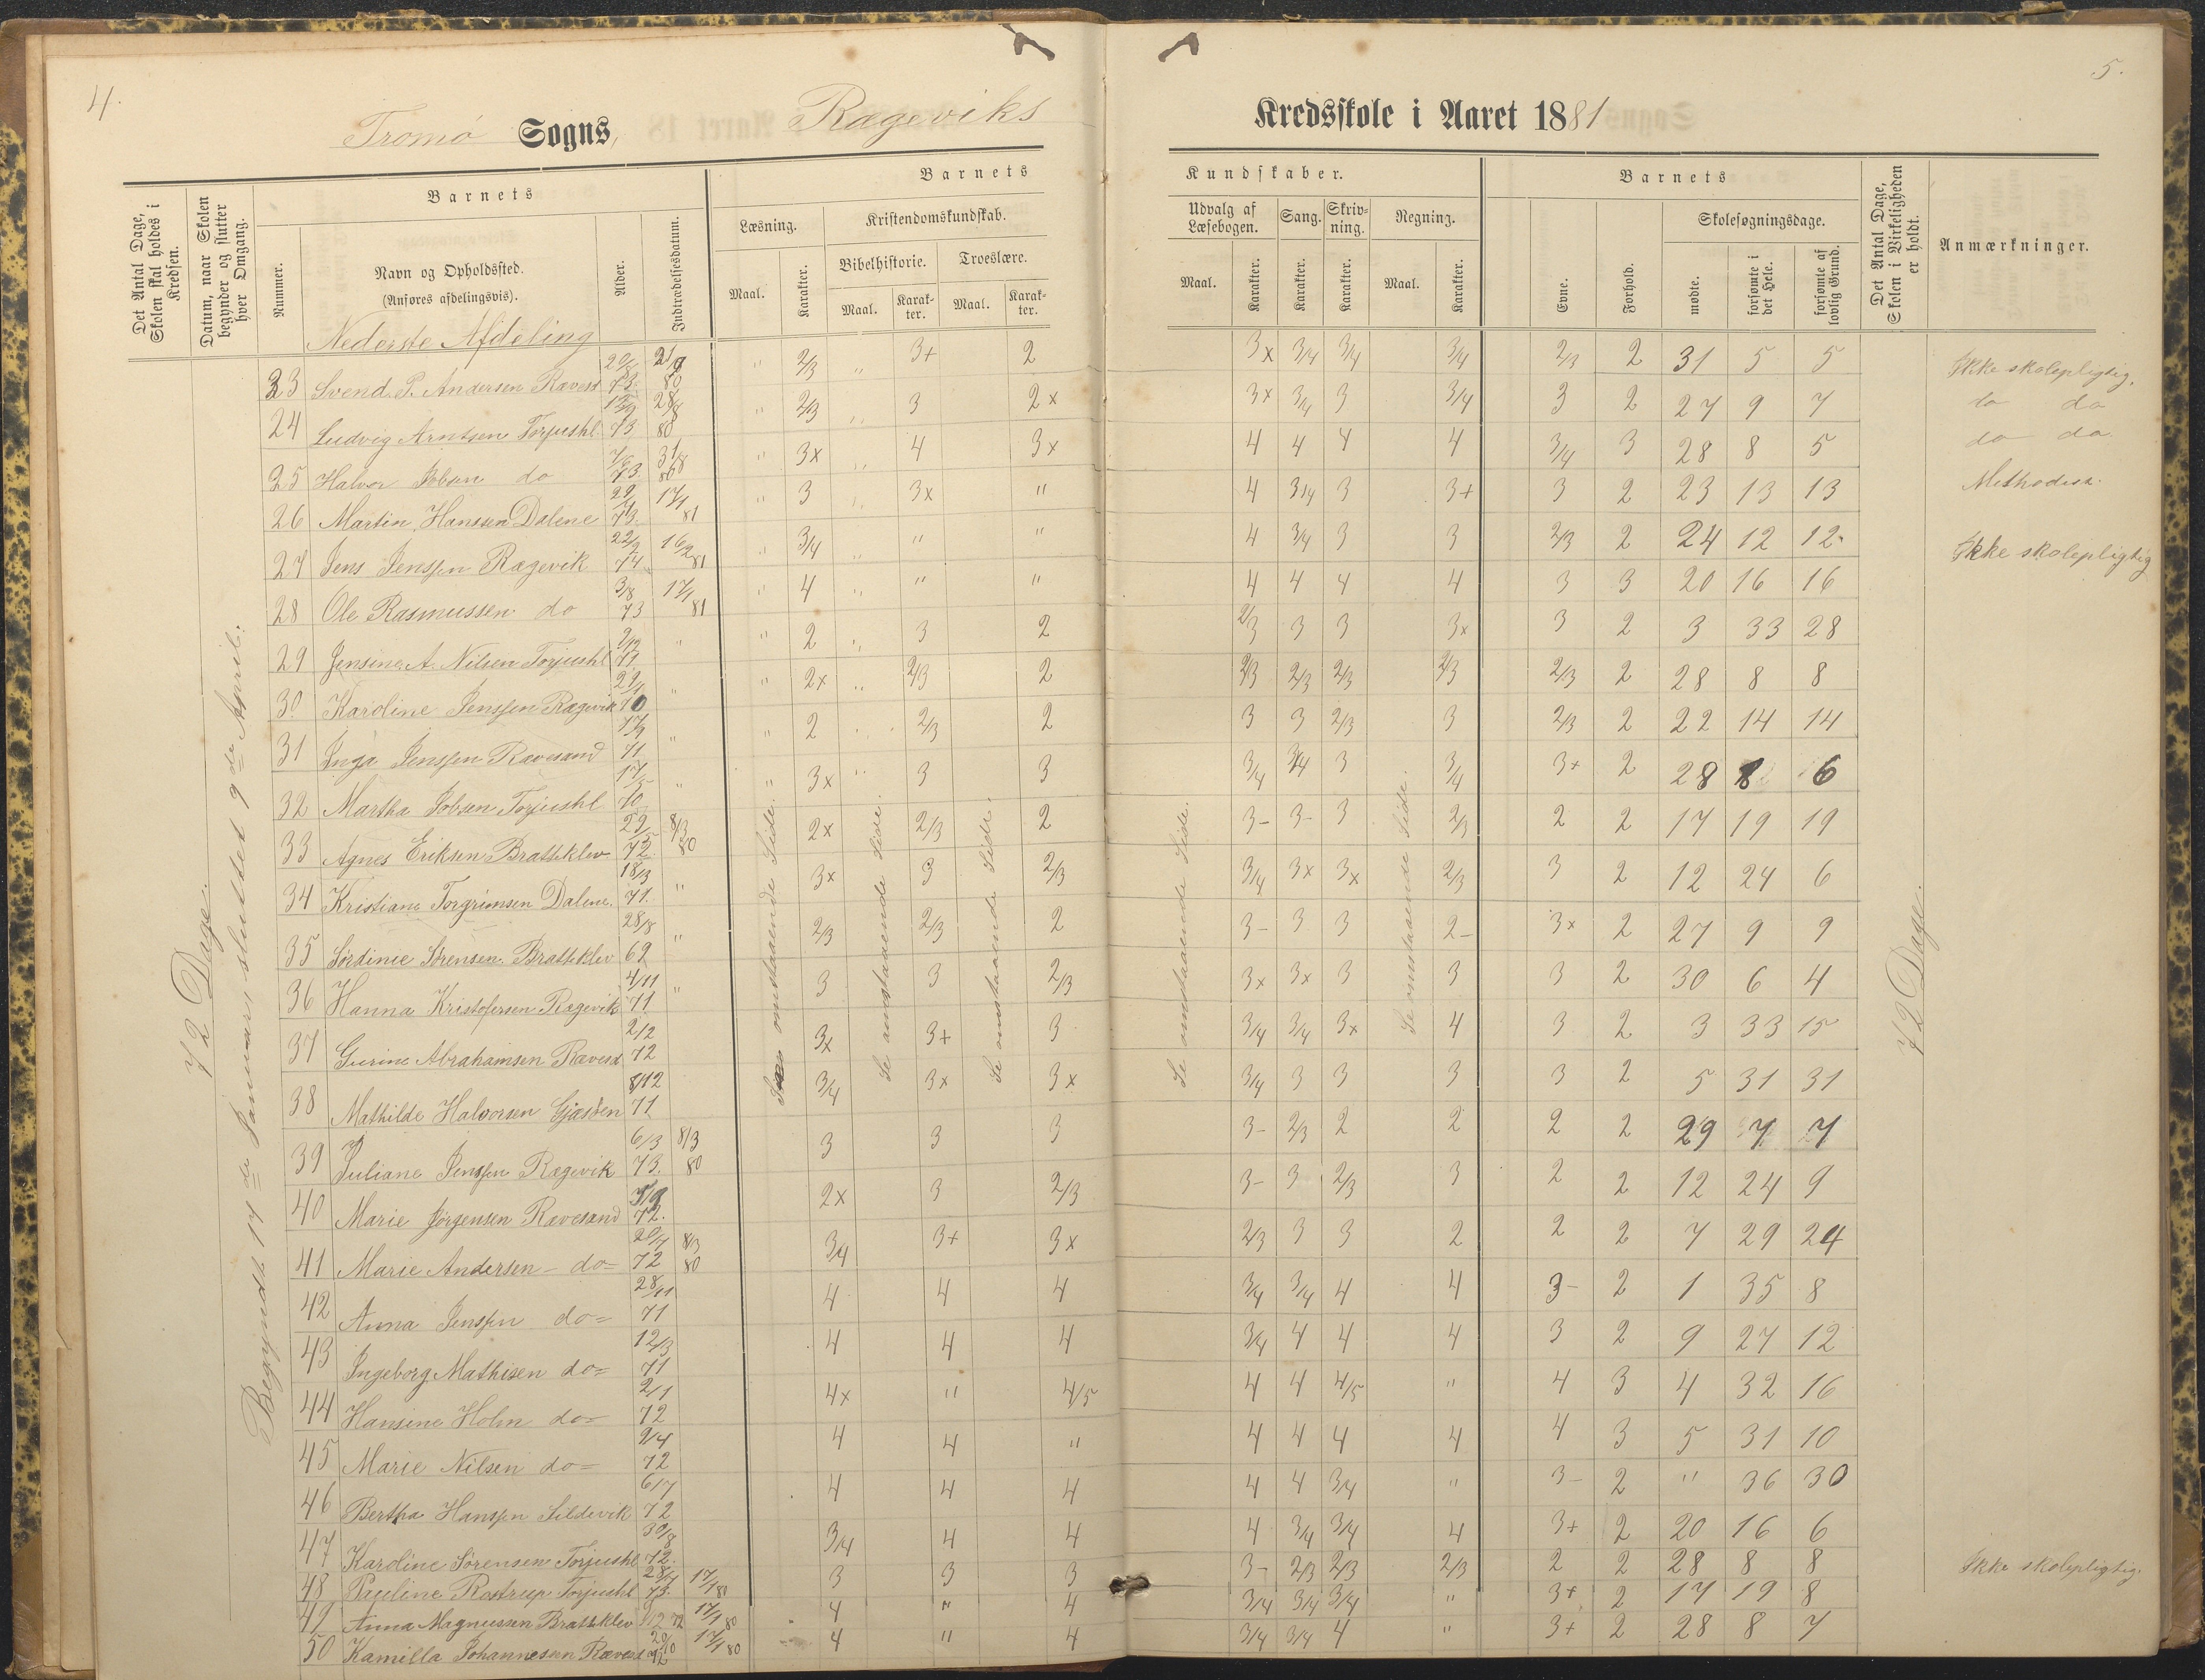 4.
5.
Tromø Sogns, Rægeviks Kredsskole i Aaret 1881
Det Antal Dage, Skolen skal holdes i Kredsen.
Datum, naar Skolen begynder og slutter hver Omgang.
Nummer.
Barnets
Navn og Opholdssted.
(Anføres afdelingsvis).
Alder.
Indtrædelsesdatum.
Barnets Kundskaber.
Læsning.
Maal. Karakter.
Kristendomskundskab.
Bibelhistorie. Troeslære.
Maal. Karakter. Maal. Karakter.
Udvalg af Læsebogen.
Maal. Karakter.
Sang. Karakter.
Skrivning. Karakter.
Regning.
Maal. Karakter.
Barnets
Evne. Forhold.
Skolesøgningsdage.
mødte. forsømte i det Hele. forsømte af lovlig Grund.
Det Antal Dage, Skolen i Virkeligheden er holdt.
Anmærkninger.
72 Dage.
Begyndt 17de Januar, sluttet 9de April.
Se omstaaende Side.
Se omstaaende Side.
Se omstaaende Side.
Se omstaaende Side.
Se omstaaende Side.
72 Dage.
Nederste Afdeling
23 Svend P. Andersen Ravesd 73 80 " 2/3 " 3+ 2 3x 3/4 3/4 3/4 2/3 2 31 5 5 Ikke skolepligtig.
24 Ludvig Arntsen Torjushl. 73 28/8 80 " 2/3 " 3 2x 3x 3/4 3 3/4 3 2 27 9 7 do do
25 Halvor Jobsen do 7/6 73 31/8 80 " 3x " 4 3x 4 4 4 4 3/4 3 28 8 5 do do
26 Martin Hansen Dalene 73 17/1 81 " 3 " 3x " 4 3/4 3 3+ 3 2 23 13 13 Methodist.
27 Jens Jenssen Rægevik 22/2 74 16/2 81 " 3/4 " " " 4 3/4 3 3 2/3 2 24 12 12 Ikke skolepligtig
28 Ole Rasmussen do 3/8 73 17/1 81 " 4 " " " 4 4 4 4 3 3 20 16 16
29 Jensine A. Nilsen Torjushl 2/12 71 " " 2 " 3 2 2/3 3 3 3x 3 2 3 33 28
30 Karoline Jenssen Rægevik 70 " " 2x " 2/3 2 2/3 2/3 2/3 2/3 2/3 2 28 8 8
31 Inga Jenssen Ravesand 71 " " 2 " 2/3 2 3 3 2/3 3 2/3 2 22 14 14
32 Martha Jobsen Torjushl 17/5 70 " " 3x " 3 3 3/4 3/4 3 3/4 3+ 2 28 8 6
33 Agnes Eriksen Bratteklev 29/5 72 8/3 80 2x 2/3 2 3- 3- 3 2/3 2 2 17 19 19
34 Kristiane Torgrimsen Dalene. 18/3 71. " 3x 3 2/3 3/4 3x 3x 2/3 3 2 12 24 6
35 Sørdinie Sørensen Bratteklev 28/8 69 " 2/3 2/3 2 3- 3 3 2- 3x 2 27 9 9
36 Hanna Kristofersen Rægevik 4/11 71 " 3 3 2/3 3x 3x 3 3 3 2 30 6 4
37 Gurine Abrahamsen Ravesd 2/2 72 3x 3+ 3 3/4 3/4 3x 4 3 2 3 33 15
38 Mathilde Halvorsen Gjæssen 8/12 71 3/4 3x 3x 3/4 3 3 3 3 2 5 31 31
39 Juliane Jenssen Rægevik 6/3 73. 8/3 80 3 3 3 3- 2/3 2 2 2 2 29 7 7
40 Marie Jørgensen Ravesand 72. 2x 3 2/3 3- 3 2/3 3 2 2 12 24 9
41 Marie Andersen - do= 20/7 72 8/3 80 3/4 3+ 3x 2/3 3 3 2 2 2 7 29 24
42 Anna Jenssen do= 28/11 71 4 4 4 3/4 3/4 4 4 3- 2 1 35 8
43 Ingeborg Mathisen do= 12/3 71 4 4 4 3/4 4 4 4 3 2 9 27 12
44 Hansine Holm do= 2/1 72 4x " 4/5 4 4 4/5 " 4 3 4 32 16
45 Marie Nilsen do= 9/4 72 4 4 " 4 4 4 4 4 3 5 31 10
46 Bertha Hanssen Sildevik 6/7 72 4 4 4 4 4 3/4 " 3- 2 " 36 30
47 Karoline Sørensen Torjushl 30/8 72. 3/4 4 4 4 3/4 3/4 4 3+ 2 20 16 6
48 Pauline Rostrup Torjushl 73. 17/1 80 3 3 3 3- 2/3 2/3 2/3 2 2 28 8 8 Ikke skolepligtig.
49 Anna Magnussen Bratteklev 72 17/1 80 4 " 4 3/4 3/4 3/4 " 3+ 2 17 19 8
50 Kamilla Johannesen Ravesd 20/10 72 17/1 80 4 " 4 3/4 3/4 4 " 3+ 2 28 8 7